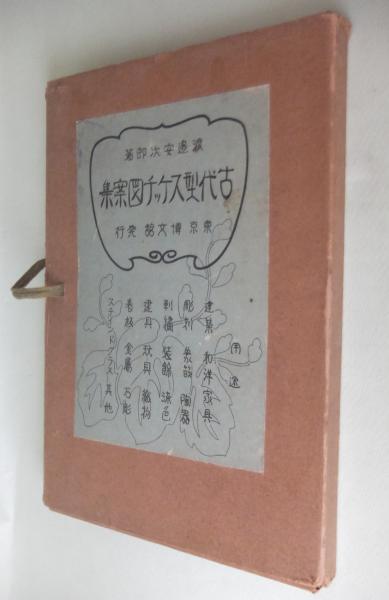 渡邊安次郎著
古代型スケッチ図案集
東京 博文館 発行
用途
建築 和洋家具
彫刻 象嵌 陶器
刺繍 装飾 染色
建具 織物
表紙 金属 石彫
ステインドグラス 其他